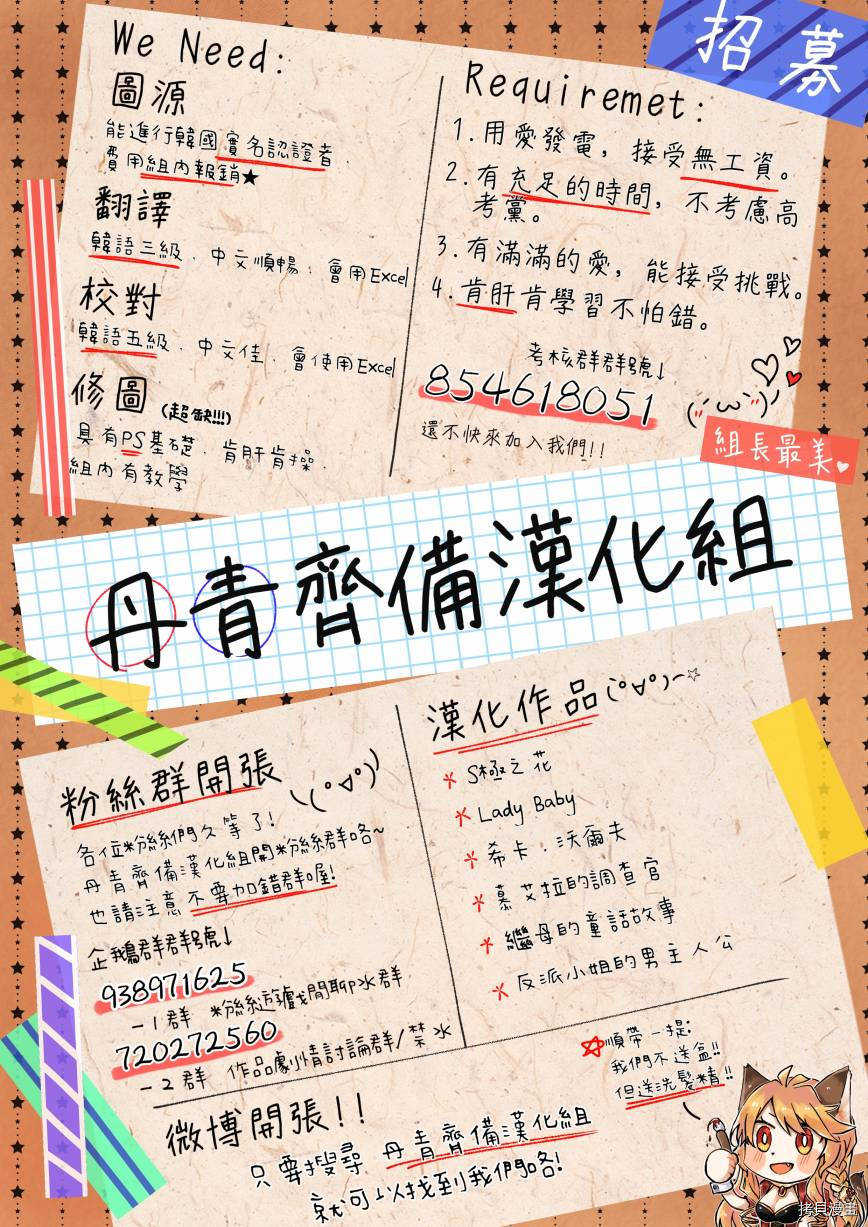 招募
We Need:
圖源
能進行韓國實名認證者.
費用組內報銷★
翻譯
韓語三級、中文順暢、會用Excel
校對
韓語五級、中文佳、會使用Excel
修圖(超缺!!!)
具有PS基礎、肯肝肯操、
組內有教學
Requiremet:
1.用愛發電，接受無工資。
2.有充足的時間，不考慮高
考黨。
3.有滿滿的愛，能接受挑戰。
4.肯肝肯學習不怕錯。
考核群群號↓
854618051
還不快來加入我們!!
組長最美
丹青齊備漢化組
粉絲群開張
各位粉絲們久等了!
丹青齊備漢化組開粉絲群咯~
也請注意不要加錯群喔!
企鵝群群號↓
938971625
-1群 粉絲遊戲閒聊水群
720272560
-2群 作品劇情討論群/禁水
漢化作品
S極之花
Lady Baby
希卡.沃爾夫
慕艾拉的調查官
繼母的童話故事
反派小姐的男主人公
順帶一提:
我們不送盆!!
但送洗髮精!!
微博開張!!
只要搜尋 丹青齊備漢化組
就可以找到我們咯!
拷貝漫畫